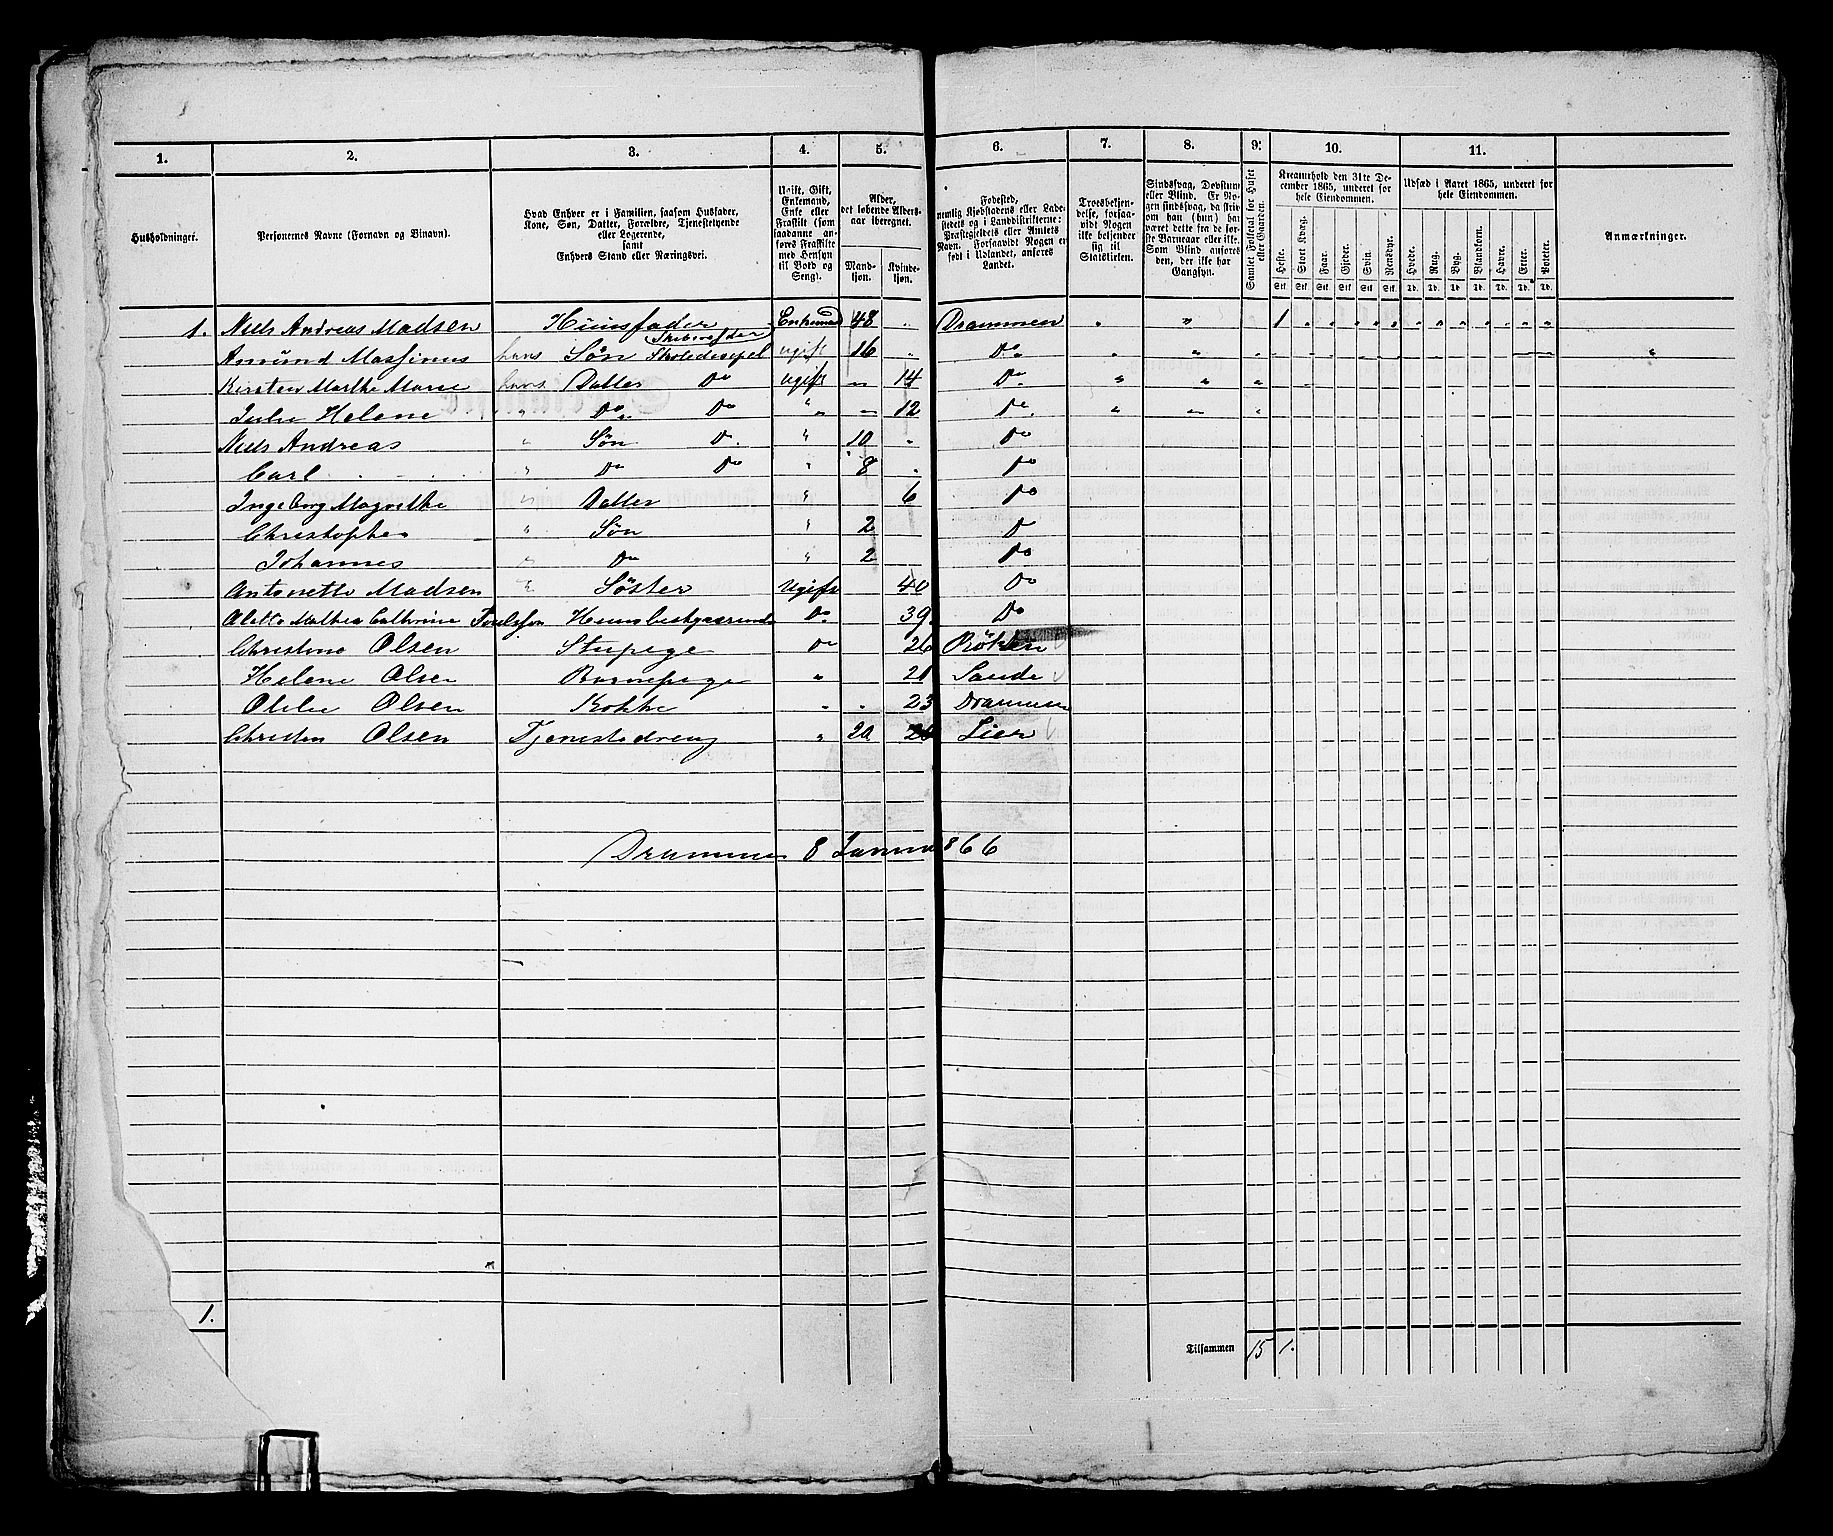 1. 2. 3. 4. 5. 6. 7. 8. 9. 10. 11.
Husholdninger.
Personernes Navne (Fornavn og Binavn).
Hvad Enhver er i Familien, saasom Husfader,
Kone, Søn, Datter, Forældre, Tjenestetyende
eller Logerende,
samt
Enhvers Stand eller Næringsvei.
Ugift, Gift,
Enkemand,
Enke eller
Fraskilt (som
saadanne an-
føres Fraskilte
med Hensyn
til Bord og
Seng).
Alder,
det løbende Alders-
aar iberegnet.
Mand-
kjøn.
Kvinde-
kjøn.
Fødested,
nemlig Kjøbstadens eller Lade-
stedets og i Landdistrikterne:
Præstegjeldets eller Amtets
Navn. Forsaavidt Nogen er
født i Udlandet, anføres
Landet.
Troesbekjen-
delse, forsaa-
vidt Nogen
ikke bekjender
sig til
Statskirken.
Sindssvag, Døvstum
eller Blind. Er No-
gen sindssvag, da skriv
om han (hun) har
været dette fra de før-
ste Barneaar eller ikke.
Som Blind anføres
den, der ikke har
Gangsyn.
Samlet Folketal for Huset
eller Gaarden.
Kreaturhold den 31te De-
cember 1865, underet for
hele Eiendommen.
Heste. Stort Kvæg. Faar. Gjeder. Svin. Rensdyr.
Stk Stk Stk Stk Stk Stk
Udsæd i Aaret 1865, underet for
hele Eiendommen.
Hvede. Rug. Byg. Blandkorn. Havre. Erter. Poteter.
Td. Td. Td Td. Td. Td. Td.
Anmærkninger.
1. Niels Andreas Madsen Huusfader Enkemand 48 Drammen 1
Amund Massinius hans Søn Skoledisipel ugift 16 Do
Kirsten Marthe Marie hans Datter Do Ugift 14 Do
Julie Helene " Do Do " 12 Do
Niels Andreas " Søn Do " 10 Do
Carl " Do Do " 8 Do
Ingeborg Magrethe " Datter " 6 Do
Christopher " Søn " 2 Do
Johannes " Do " 2 Do
Antonette Madsen Søster Ugift 40 Do
Cathrine Do 39 Do
Christine Olsen Stupige Do 26 Røken
Helene Olsen Barnepige " 21 Sande
Olsen Kokke " 23 Drammen
Christen Olsen Tjenestedreng " 20 Lier
Drammen 8 1866
1.
Tilsammen 15 1.